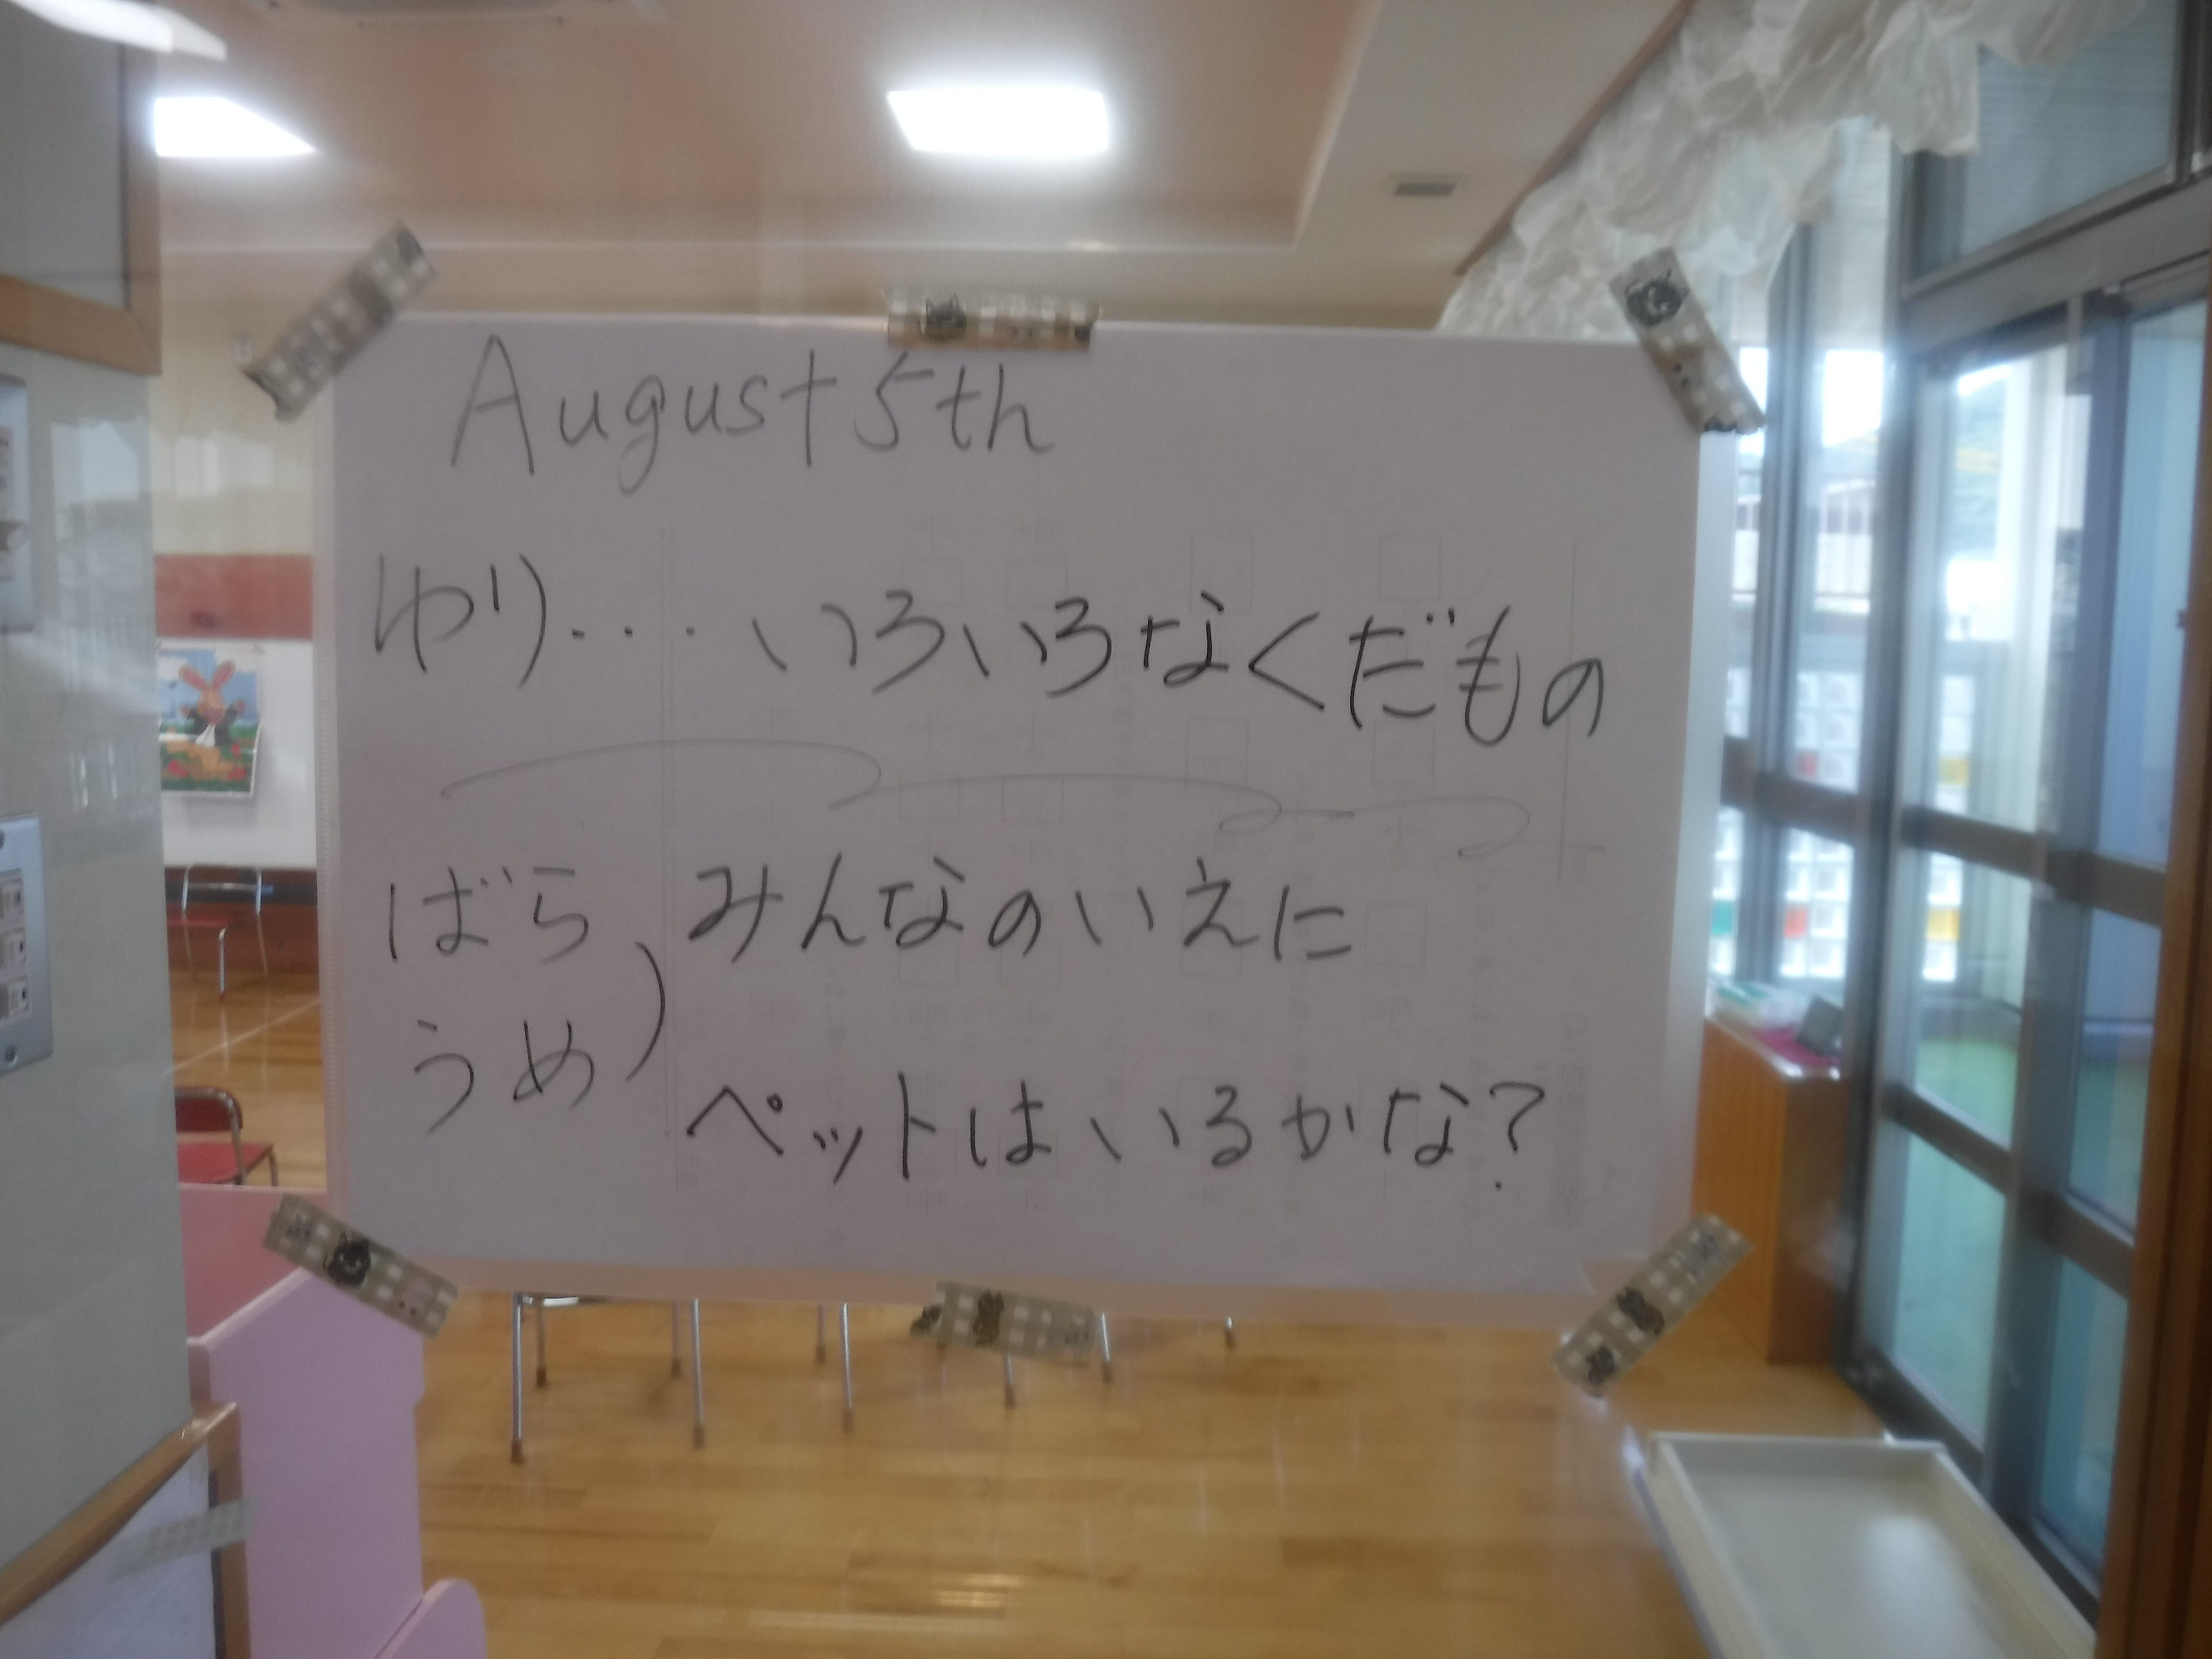 August 5th
ゆり・・・・いろいろなくだもの
ばら、みんなのいえに
うめ）
ペットはいるかな？